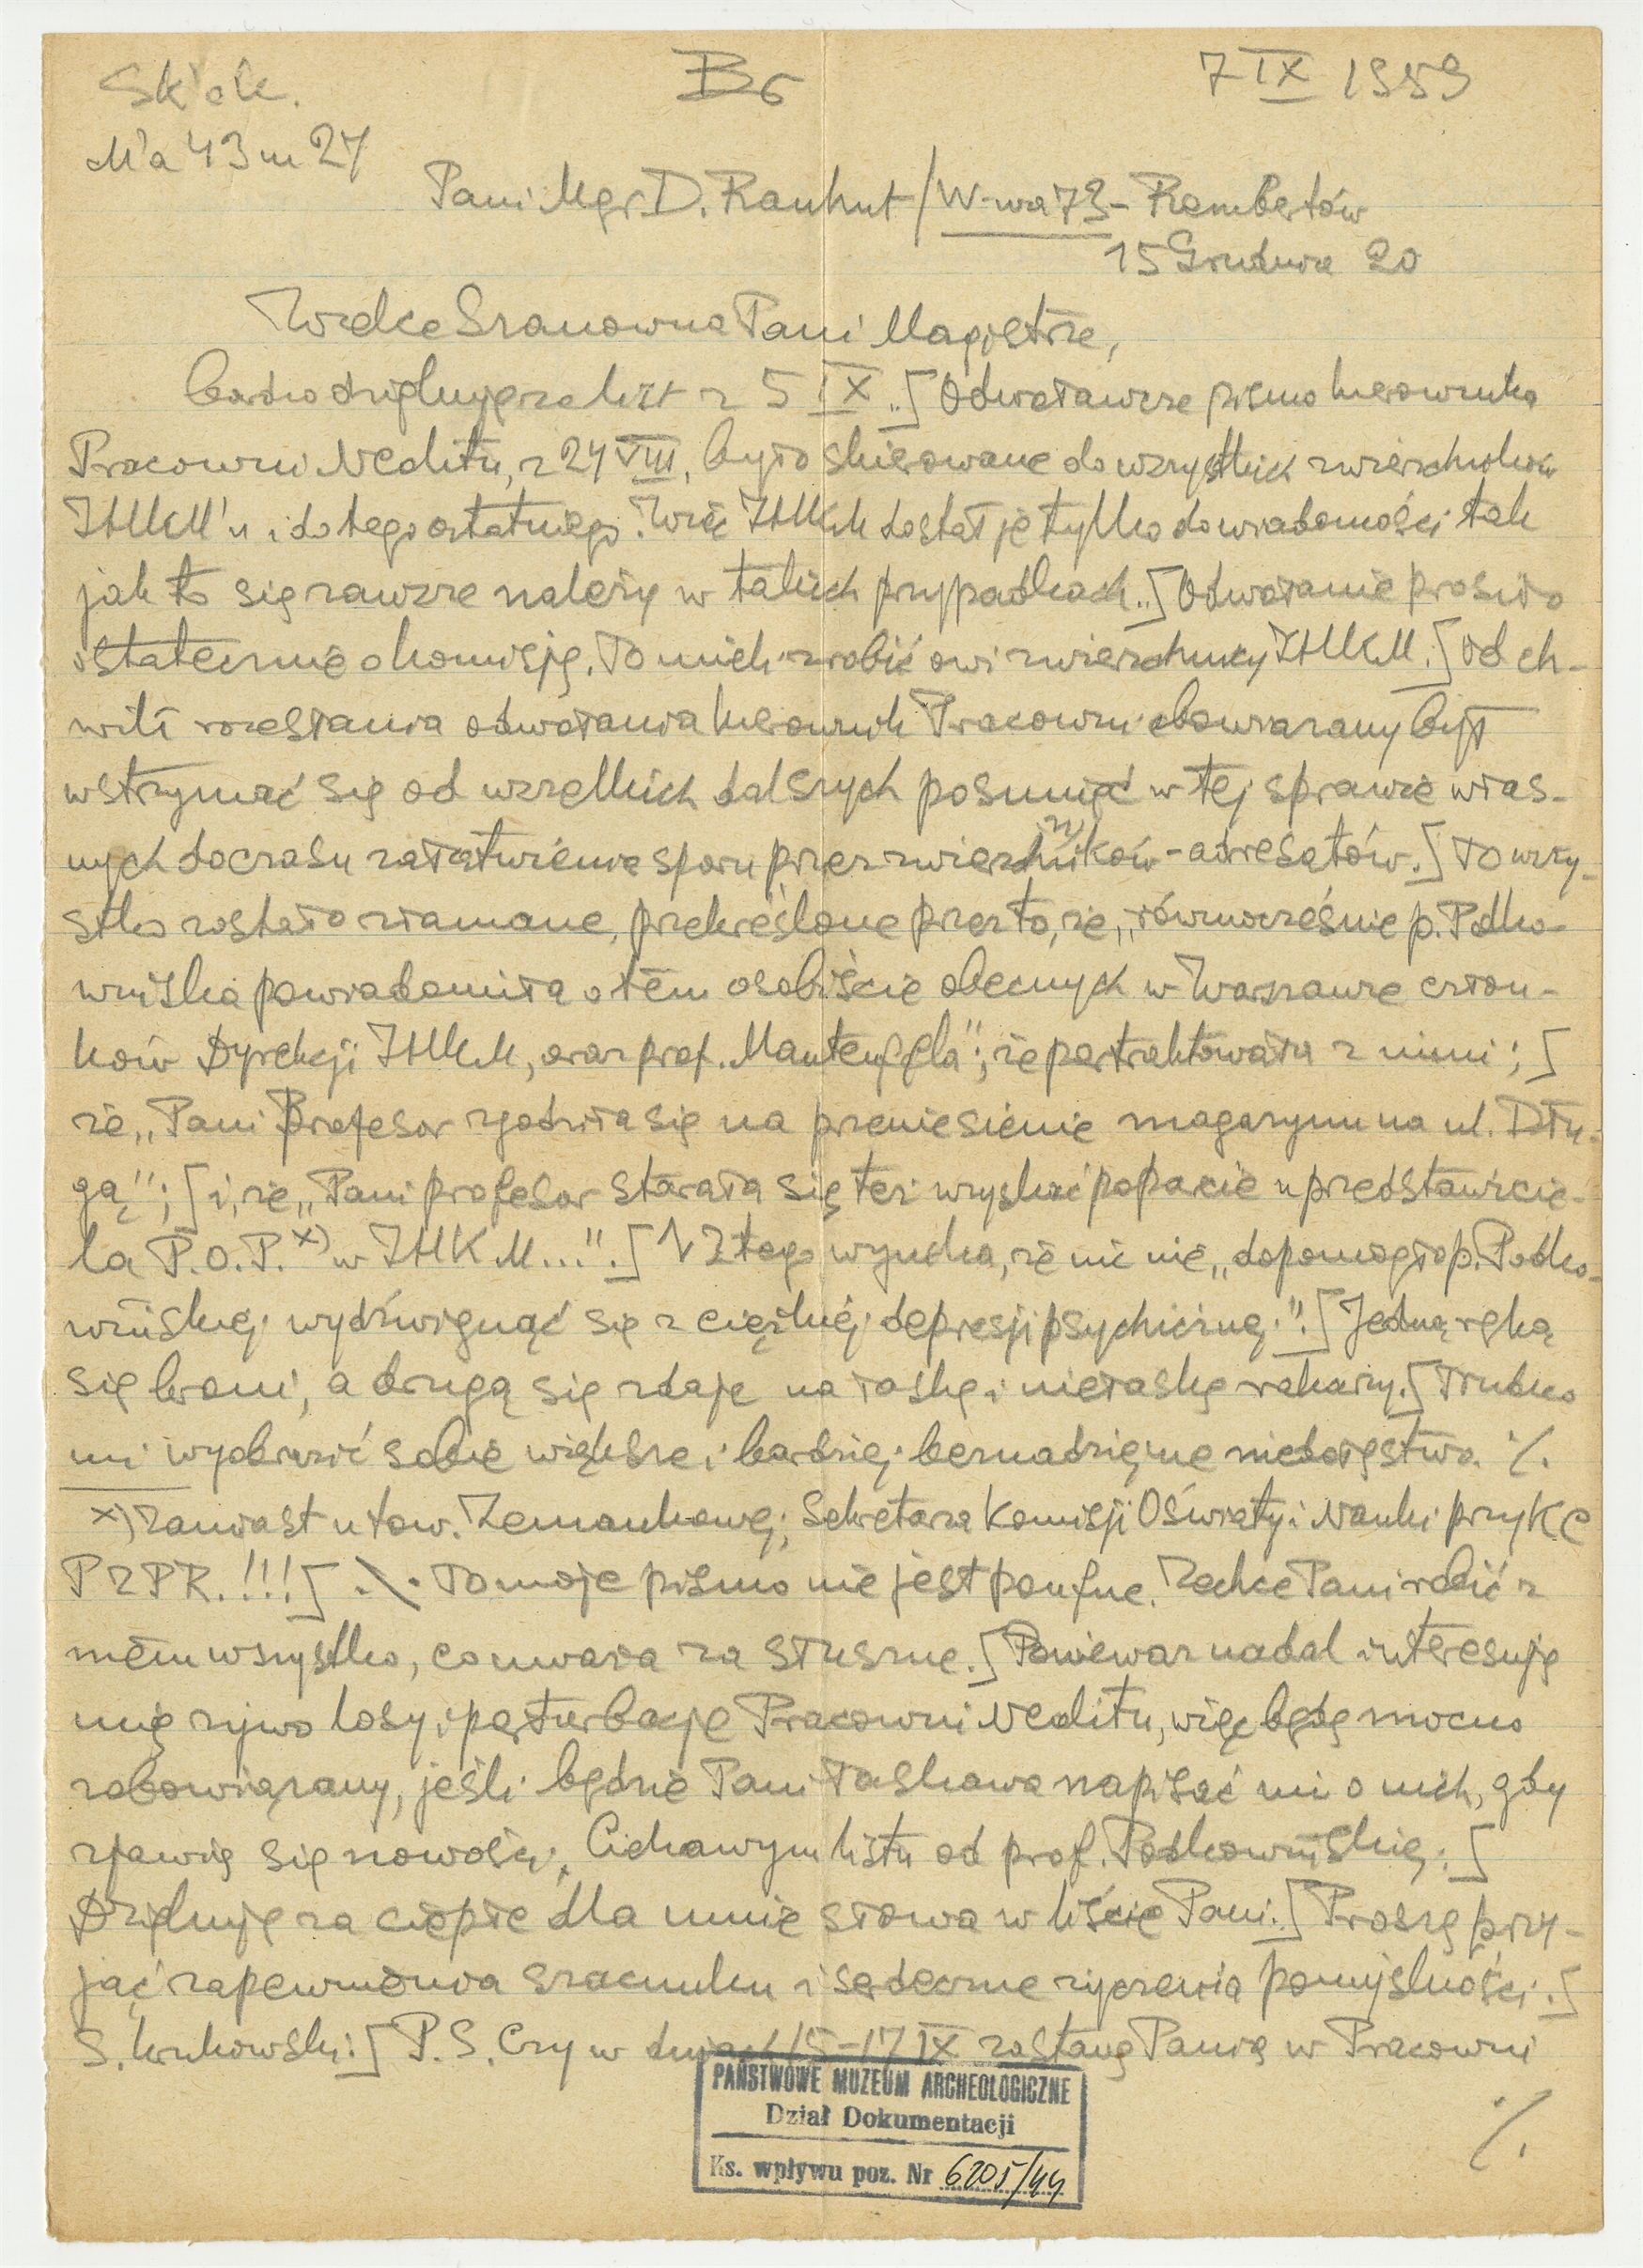 Sk'ole.
M'a 43 m 27
Br
7 IX 1959
Pani Mgr D. Rauhut / W-wa 73 - Rembertów
15 Grudnia 20
Wielce Szanowna Pani Magistrze,
bardzo dziękuję za list z 5 IX..] Odwoławcze pismo kierownika
Pracowni Neolitu, z 24 VIII, było skierowane do wszystkich zwierzchników
IHKM'u i do tego ostatniego. Więc IHKM dostał je tylko do wiadomości tak
jak to się zawsze należy w takich przypadkach..] Odwołanie prosiło
ostatecznie o komisję. To mieli zrobić owi zwierzchnicy IHKM.] Od ch-
wili rozesłania odwołania kierownik Pracowni obowiązany był
wstrzymać się od wszelkich dalszych posunięć w tej sprawie włas-
nych do czasu załatwienia sporu przez zwierzchników - adresatów.] To wszy-
stko zostało złamane, przekreślone przez to, że „równocześnie p. Podko-
wińska powiadomiła o tem osobiście obecnych w Warszawie człon-
ków Dyrekcji IHKM, oraz prof. Manteuffla"; że pertraktowała z nimi;]
że „Pani Profesor zgodziła się na przeniesienie magazynu na ul. Dłu-
gą";] i, że „Pani profesor starała się też uzyskać poparcie u przedstawicie-
la P.O.P. x) w IHKM...".] Z tego wynika, że nic nie „dopomogło p. Podko-
wińskiej wydźwignąć się z ciężkiej depresji psychicznej.".] Jedną ręką
się broni, a drugą się zdaje na łaskę i niełaskę wrażej.] Trudno
mi wyobrazić sobie większe i bardziej beznadziejne niedołęstwo. ./.
x) Zamiast u tow. Zemankowej, Sekretarza Komisji Oświaty i Nauki przy KC
PZPR.!!!] .\. To moje pismo nie jest poufne. Zechce Pani robić z
niem wszystko, co uważa za słuszne.] Ponieważ nadal interesuję
mię żywo losy i perturbacje Pracowni Neolitu, więc będę mocno
zobowiązany, jeśli będzie Pani łaskawa napisać mi o nich, gdy
zjawią się nowości. Ciekawym listu od prof. Podkowińskiej.]
Dziękuję za ciepłe dla mnie słowa w liście Pani.] Proszę przy-
jąć zapewnienia szacunku i serdeczne życzenia pomyślności.]
S. Krukowski.] P.S. Czy w dniach 15-17 IX zastanę Panią w Pracowni
./.
PAŃSTWOWE MUZEUM ARCHEOLOGICZNE
Dział Dokumentacji
Ks. wpływu poz. Nr 6205/44